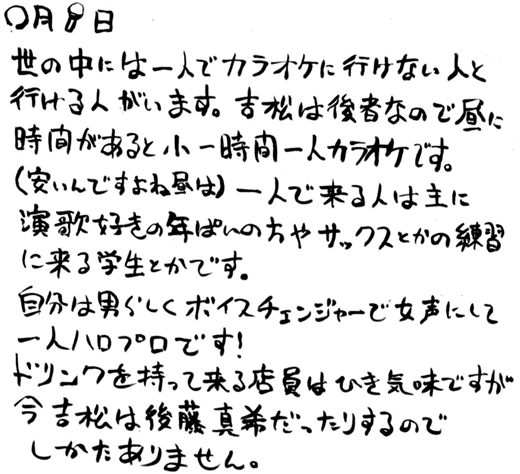 〇月8日
世の中には一人でカラオケに行けない人と
行ける人がいます。吉松は後者なので昼に
時間があると小一時間一人カラオケです。
(安いんですよね昼は)一人で来る人は主に
演歌好きの年ぱいの方やサックスとかの練習
に来る学生とかです。
自分は男らしくボイスチェンジャーで女声にして
一人ハロプロです!
ドリンクを持って来る店員はひき気味ですが
今吉松は後藤真希だったりするので
しかたありません。